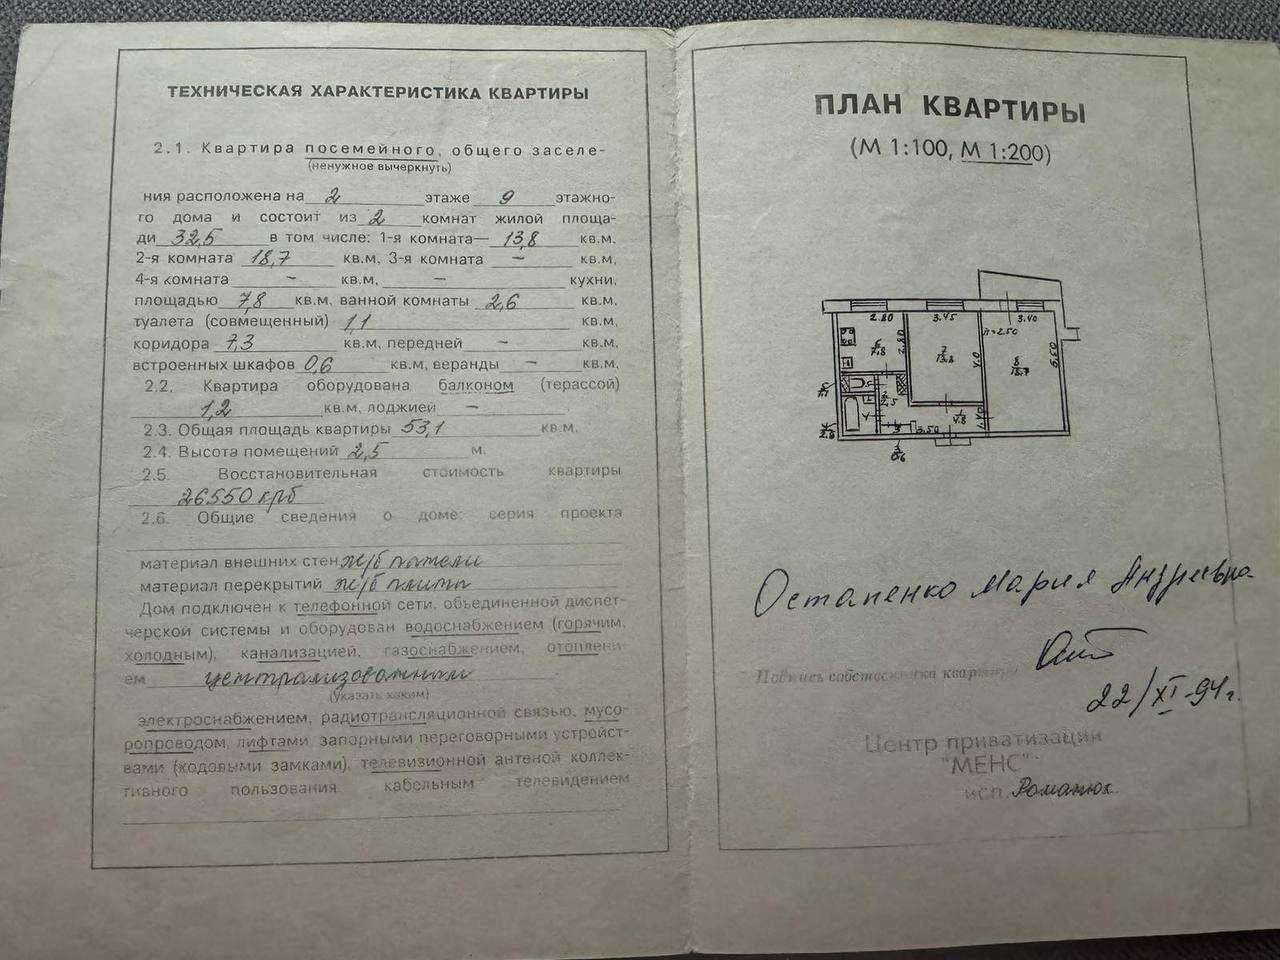 ТЕХНИЧЕСКАЯ ХАРАКТЕРИСТИКА КВАРТИРЫ
2.1. Квартира посемейного, общего заселе-
(ненужное вычеркнуть)
ния расположена на 2 этаже 9 этажно-
го дома и состоит из 2 комнат жилой площа-
ди 32,5 в том числе: 1-я комната— 13,8 кв.м,
2-я комната 18,7 кв.м, 3-я комната — кв.м,
4-я комната — кв.м, — кухни,
площадью 7,8 кв.м, ванной комнаты 2,6 кв.м,
туалета (совмещенный) 1,1 кв.м,
коридора 7,3 кв.м, передней — кв.м,
встроенных шкафов 0,6 кв.м, веранды — кв.м,
2.2. Квартира оборудована балконом (терассой)
1,2 кв.м, лоджией —
2.3. Общая площадь квартиры 53,1 кв.м.
2.4. Высота помещений 2,5 м.
2.5. Восстановительная стоимость квартиры
26550 крб
2.6. Общие сведения о доме: серия проекта
материал внешних стен ж/б панели
материал перекрытий ж/б плита
Дом подключен к телефонной сети, объединенной диспет-
черской системы и оборудован водоснабжением (горячим,
холодным), канализацией, газоснабжением, отоплени-
ем централизованным
(указать каким)
электроснабжением, радиотрансляционной связью, мусо-
ропроводом, лифтами, запорными переговорными устройст-
вами (кодовыми замками), телевизионной антеной коллек-
тивного пользования, кабельным телевидением
ПЛАН КВАРТИРЫ
(М 1:100, М 1:200)
2.80 3.45 3.40
h=2.50
6 7.8 2.80 7 13.8 4.0 8 18.7 5.50
5 1.1 2 2.5 1 4.8 1.40
4 2.6 3.50
3 0.6
Остапенко Мария Андреевна
Подпись собственника квартиры
22/XI-94г.
Центр приватизации
"МЕНС"
исп. Романюк